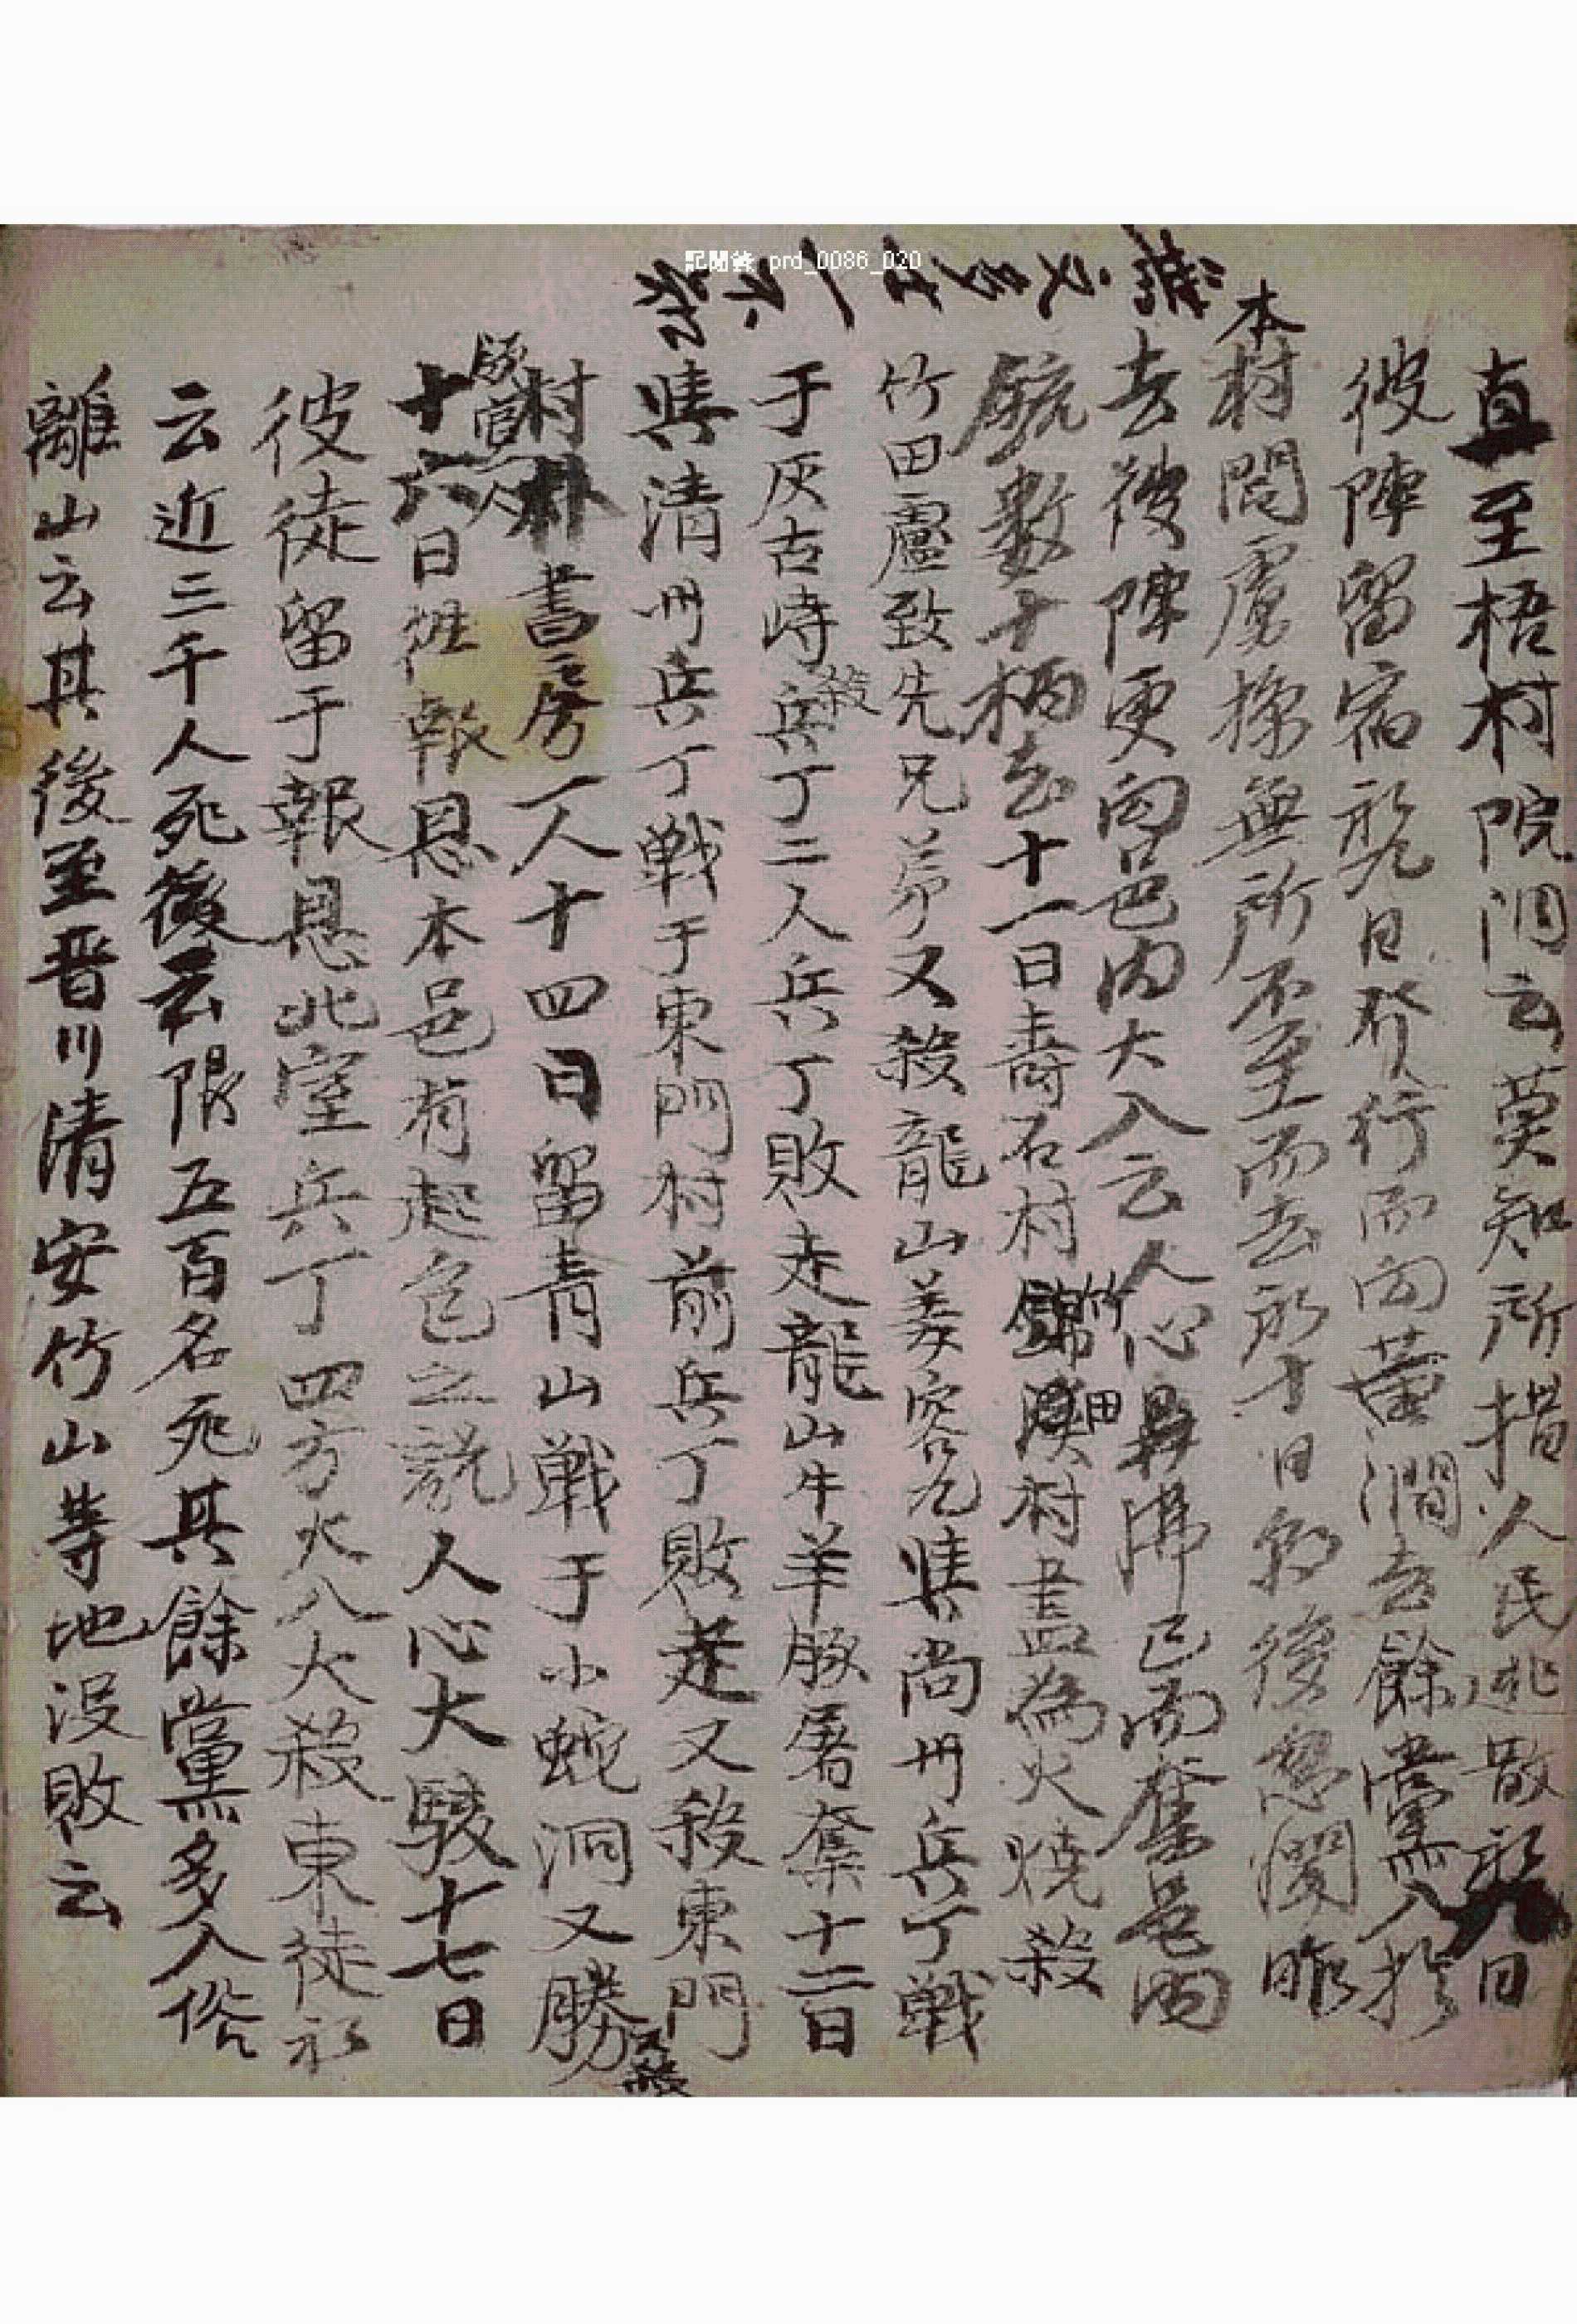 記聞錄 prd_0086_020
直至梧村院洞云莫知所措人民逃散翌日
彼陣留宿翌日發行而向黃澗去餘黨入於
本村閭虜掠無所不至而去初十日夘後愁悶昨
去後陣更向邑內大入云人心鼎沸已而奪邑內
銃數十柄去十一日壽石村錦溪竹田村盡爲火燒殺
竹田盧致先兄弟又殺龍山姜 與尙州兵丁戰
于灰古峙殺兵丁二人兵丁敗走龍山牛羊豚屠奪十二日
與淸州兵丁戰于東門村前兵丁敗走又殺東門
村朴書房一人十四日留靑山戰于小蛇洞又勝又殺
十六日 報恩本邑有起包之說人心大駭十七日
彼徒留于報恩北室兵丁四方大入大殺東徒初
云近三千人死後云限五百名死其餘黨多入俗
離山云其後至晋川淸安竹山等地沒敗云